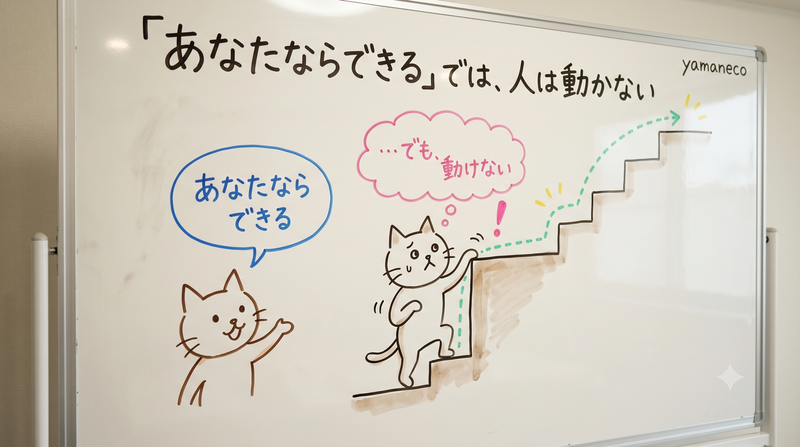 「あなたならできる」では、人は動かない
yamaneco
あなたなら
できる
…でも、
動けない
!